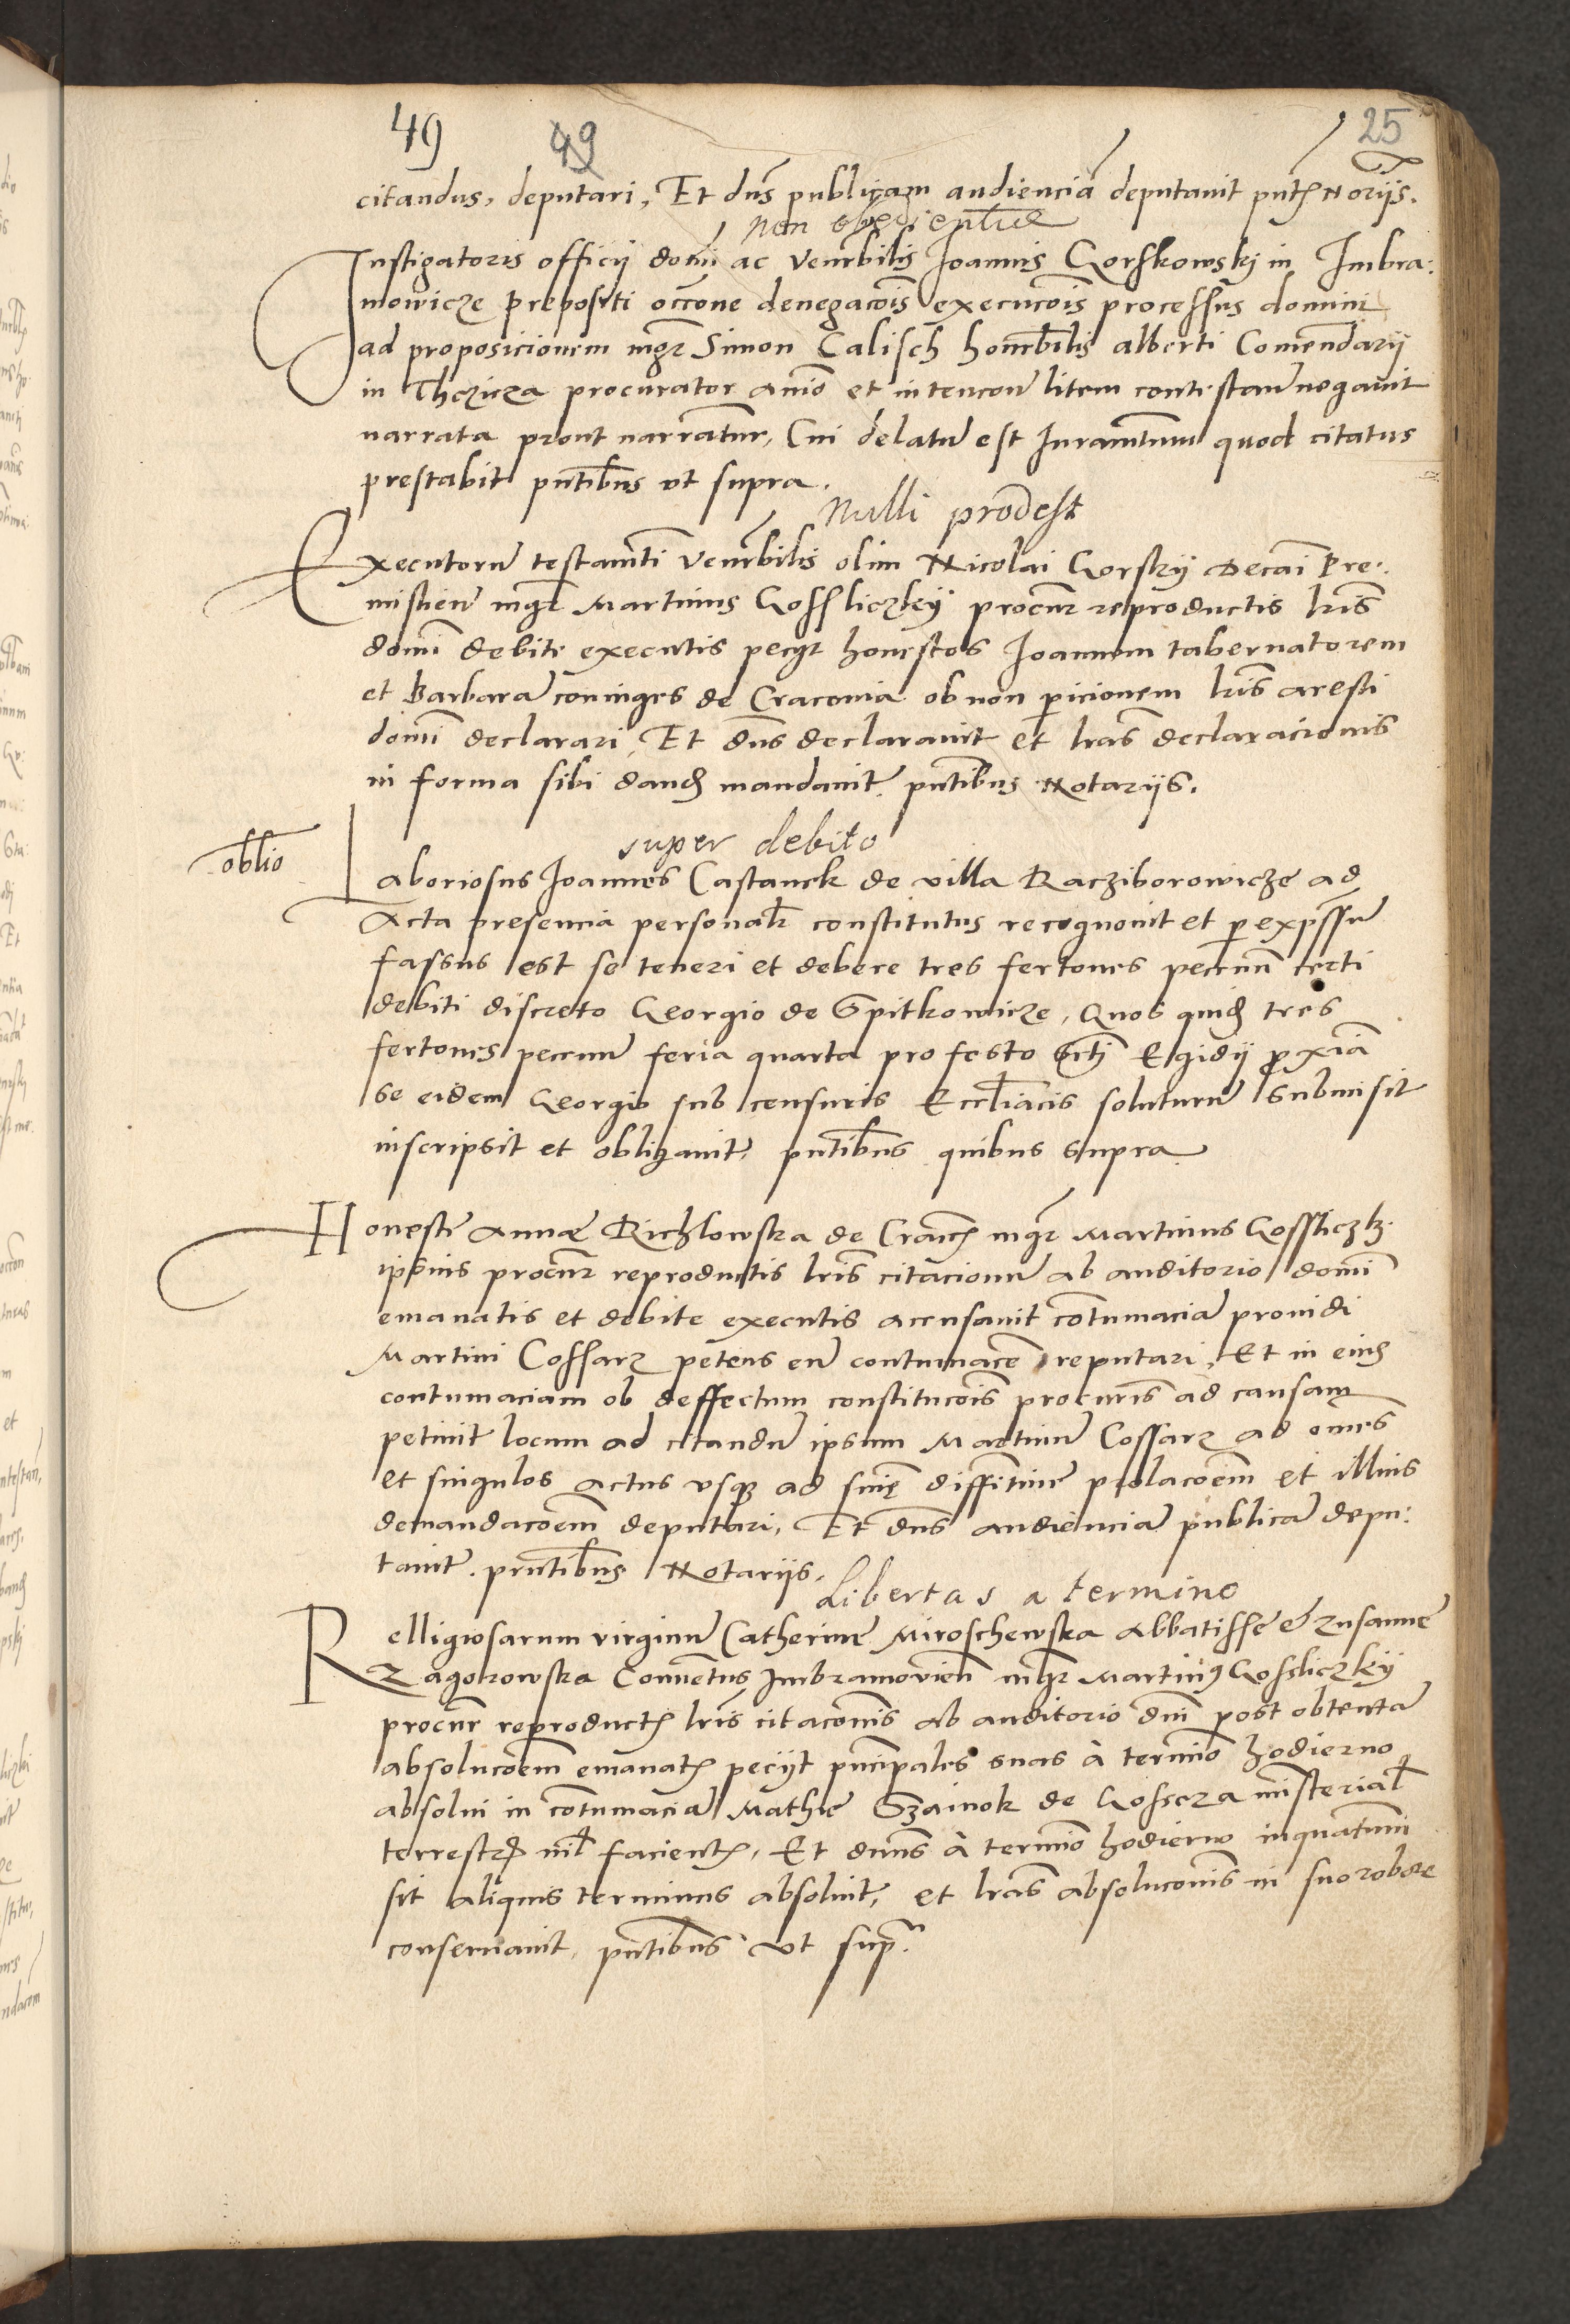 49 49 25
citandus, deputari, Et dns publicam audienciã deputavit pntꝭ Noriis.
non obedientiae
Instigatoris officij domĩ ac Venerbilis Joannis Gorskowskj in Imbra:
mowicze prepositi occõne denegacõis execucõis processus domini
ad proposicionem mgr Simon Calisch honorbilis alberti Comendarij
in Thczicza procurator animo et intencoñ litem contestan negavit
narrata prout narrantur, Cui delatũ est Juramtum quod citatus
prestabit pntibus vt supra.
Nulli prodest
Executorũ testamti Venerbilis olim Nicolai Gorskij Decani Pre:
mislien mgr Martinus Gossliczkij procur reproductis lris
domĩ debite executis pecijt honestos Joannem tabernatorem
et Barbarã coniuges de Cracovia ob non paricionem lris aresti
domĩ declarari, Et dns declaravit et lras declaracionis
in forma sibi dandas mandavit pntibus Notarijs.
super debito
oblio
Laboriosus Joannes Castanek de villa Racziborowicze ad
Acta presencia personalr constitutus recognovit et per expssũ
fassus est se teneri et debere tres fertones pecunñ certi
debiti discreto Georgio de Spitkowicze, Quos quidẽ tres
fertones pecuñ feria quarta pro festo Scti Egidij proximã
se eidem Georgio sub censuris Eccliacis soluturũ submisit
inscripsit et obligavit, pntibus quibus supra
Honeste Annae Richlowska de Cracꝭ mgr Martinus Gossliczkj
ipsius procur reproductis lris citacionũ ab auditorio domĩ
emanatis et debite executis accusavit contumaciã providi
Martini Cossarz petens eũ contumacẽ reputari, Et in eius
contumaciam ob deffectum constitucõis procuris ad causam
petivit locum ad citandũ ipsum Martinũ Cossarz ad omẽs
et singulos actus vsqꝫ ad sniẹ diffinitiue prolacõem et illius
demandacõem deputari, Et dns audienciã publicã depu:
tavit. prntibus Notarijs,
Libertas a termino
Relligiosarum virginũ Catherine Miroschewska Abbatisse et Zusanne
Zagorowska Conventus Imbramovieñ mgr Martinus Gossliczkij
procur reproductꝭ lris citacõnis ab auditorio dni post obtentã
absolucõem emanatꝭ pecijt principales suas à termino hodierno
absolui in contumaciã Mathie Szainok de Gossza misterial
terrestrꝭ nil facientꝭ, Et dnus à termino hodierno inquantum
sit aliquis terminus absoluit, et lras absolucõnis in suo robore
conservavit, pntibus vt supra